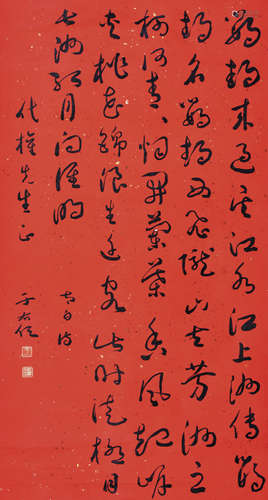 鸚鵡來過吳江水江上洲傳鸚
鵡名鸚鵡西飛隴山去芳洲之
樹何青々烟開蘭葉香風起岸
夾桃花錦浪生遷客此時徒極目
長洲孤月向誰明 太白詩
代權先生正 于右任